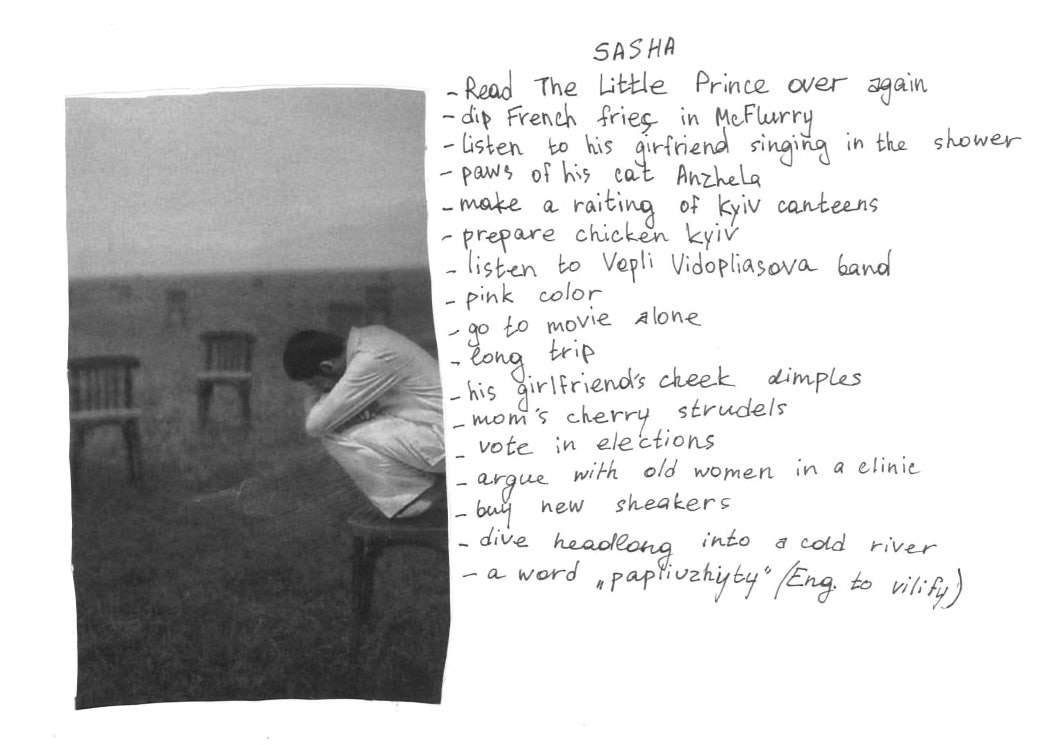 SASHA
- Read The Little Prince over again
- dip French fries in McFlurry
- listen to his girlfriend singing in the shower
- paws of his cat Anzhela
- make a raiting of Kyiv canteens
- prepare chicken Kyiv
- listen to Vopli Vidopliasova band
- pink color
- go to movie alone
- long trip
- his girlfriend's cheek dimples
- mom's cherry strudels
- vote in elections
- argue with old women in a clinic
- buy new sneakers
- dive headlong into a cold river
- a word „papliuzhyty“ (Eng. to vilify)